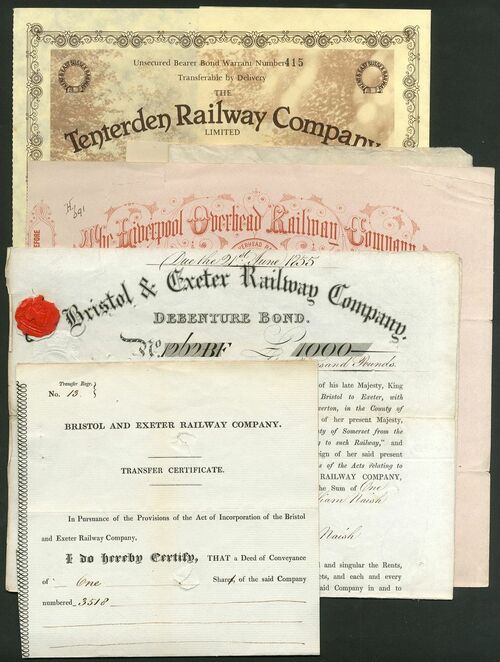 Unsecured Bearer Bond Warrant Number 415
Transferable by Delivery
THE
Tenterden Railway Company
LIMITED
H.
391
BEFORE
The Liverpool Overhead Railway Company
Due the 21st June 1855
Bristol & Exeter Railway Company.
DEBENTURE BOND.
No 12/12BF £1000
sand Pounds.
of his late Majesty, King
Bristol to Exeter, with
verton, in the County of
of her present Majesty,
nty of Somerset from the
g to such Railway," and
eign of her said present
s of the Acts relating to
RAILWAY COMPANY,
the Sum of One
liam Naish
Naish
and singular the Rents,
ets, and each and every
d Company in and to
Transfer Regr.
No. 13.
BRISTOL AND EXETER RAILWAY COMPANY.
TRANSFER CERTIFICATE.
In Pursuance of the Provisions of the Act of Incorporation of the Bristol
and Exeter Railway Company,
I do hereby Certify, THAT a Deed of Conveyance
of One Share, of the said Company
numbered 3518